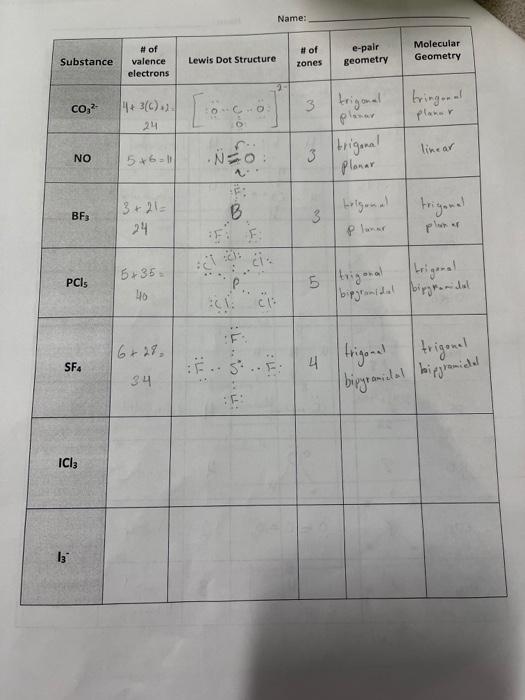 Name:
Substance
# of valence electrons
Lewis Dot Structure
# of zones
e-pair geometry
Molecular Geometry
CO₃²⁻
4+ 3(6)+2=
24
[:Ö··C··Ö:]²⁻
:O:
3
trigonal
planar
tringonal
planar
NO
5+6=11
·N̈=O:
3
trigonal
planar
linear
BF₃
3+21=
24
:F̈:
B
:F̈: :F̈:
3
trigonal
planar
trigonal
planar
PCl₅
5+35=
40
:Cl :Cl: Cl:
P
:Cl: Cl:
5
trigonal
bipyramidal
trigonal
bipyramidal
SF₄
6+28=
34
:F:
:F̈··S··F̈:
:F:
4
trigonal
bipyramidal
trigonal
bipyramidal
ICl₃
I₃⁻